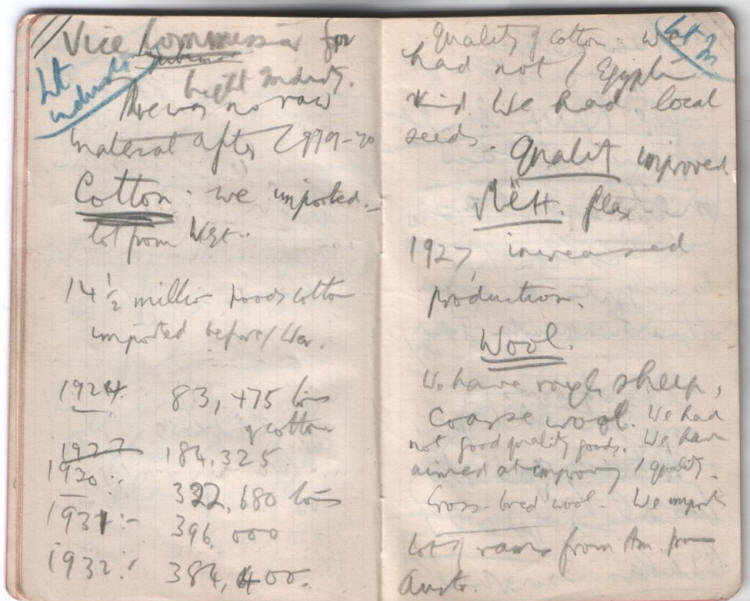 Vice Commissar for
Lt
industr
Light Industry.
There was no raw
material after 1919-20
Cotton. we imported
lot from
14 1/2 million poods cotton
imported before War.
1924 83,475 tons
of cotton
1927 184,325
1930:
322,680 tons
1931:- 396,000
1932: 384,400.
Quality of cotton.
had not Egyptn
kind. We had local
seeds. Quality improved
Лён. flax
1927, increased
production.
Wool.
We have rough sheep,
coarse wool. We had
not good quality goods. We have
aimed at improving quality.
Cross-bred wool. We import
lot of rams from Am. from
Austr.